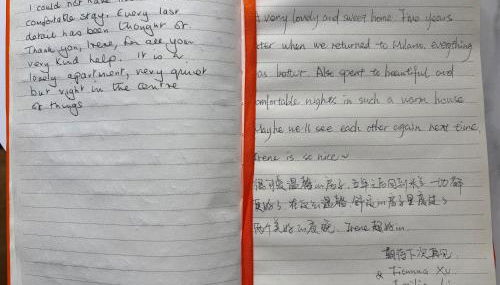 I could not have
comfortable stay. Every last
detail has been thought of
Thank you, Irene, for all your
very kind help. It is a
lovely apartment, very quiet
but right in the centre
of things
A very lovely and sweet home. Two years
later when we returned to Milano. everything
was better. Also spent to beautiful and
comfortable nights in such a warm house
Maybe we'll see each other again next time.
Irene is so nice~
很可爱温馨的房子,
一切都
更好了 在这么温馨、舒适的房子里度过了
两个美好的夜晚. Irene 超好的.
期待下次再见
& Tianna Xu